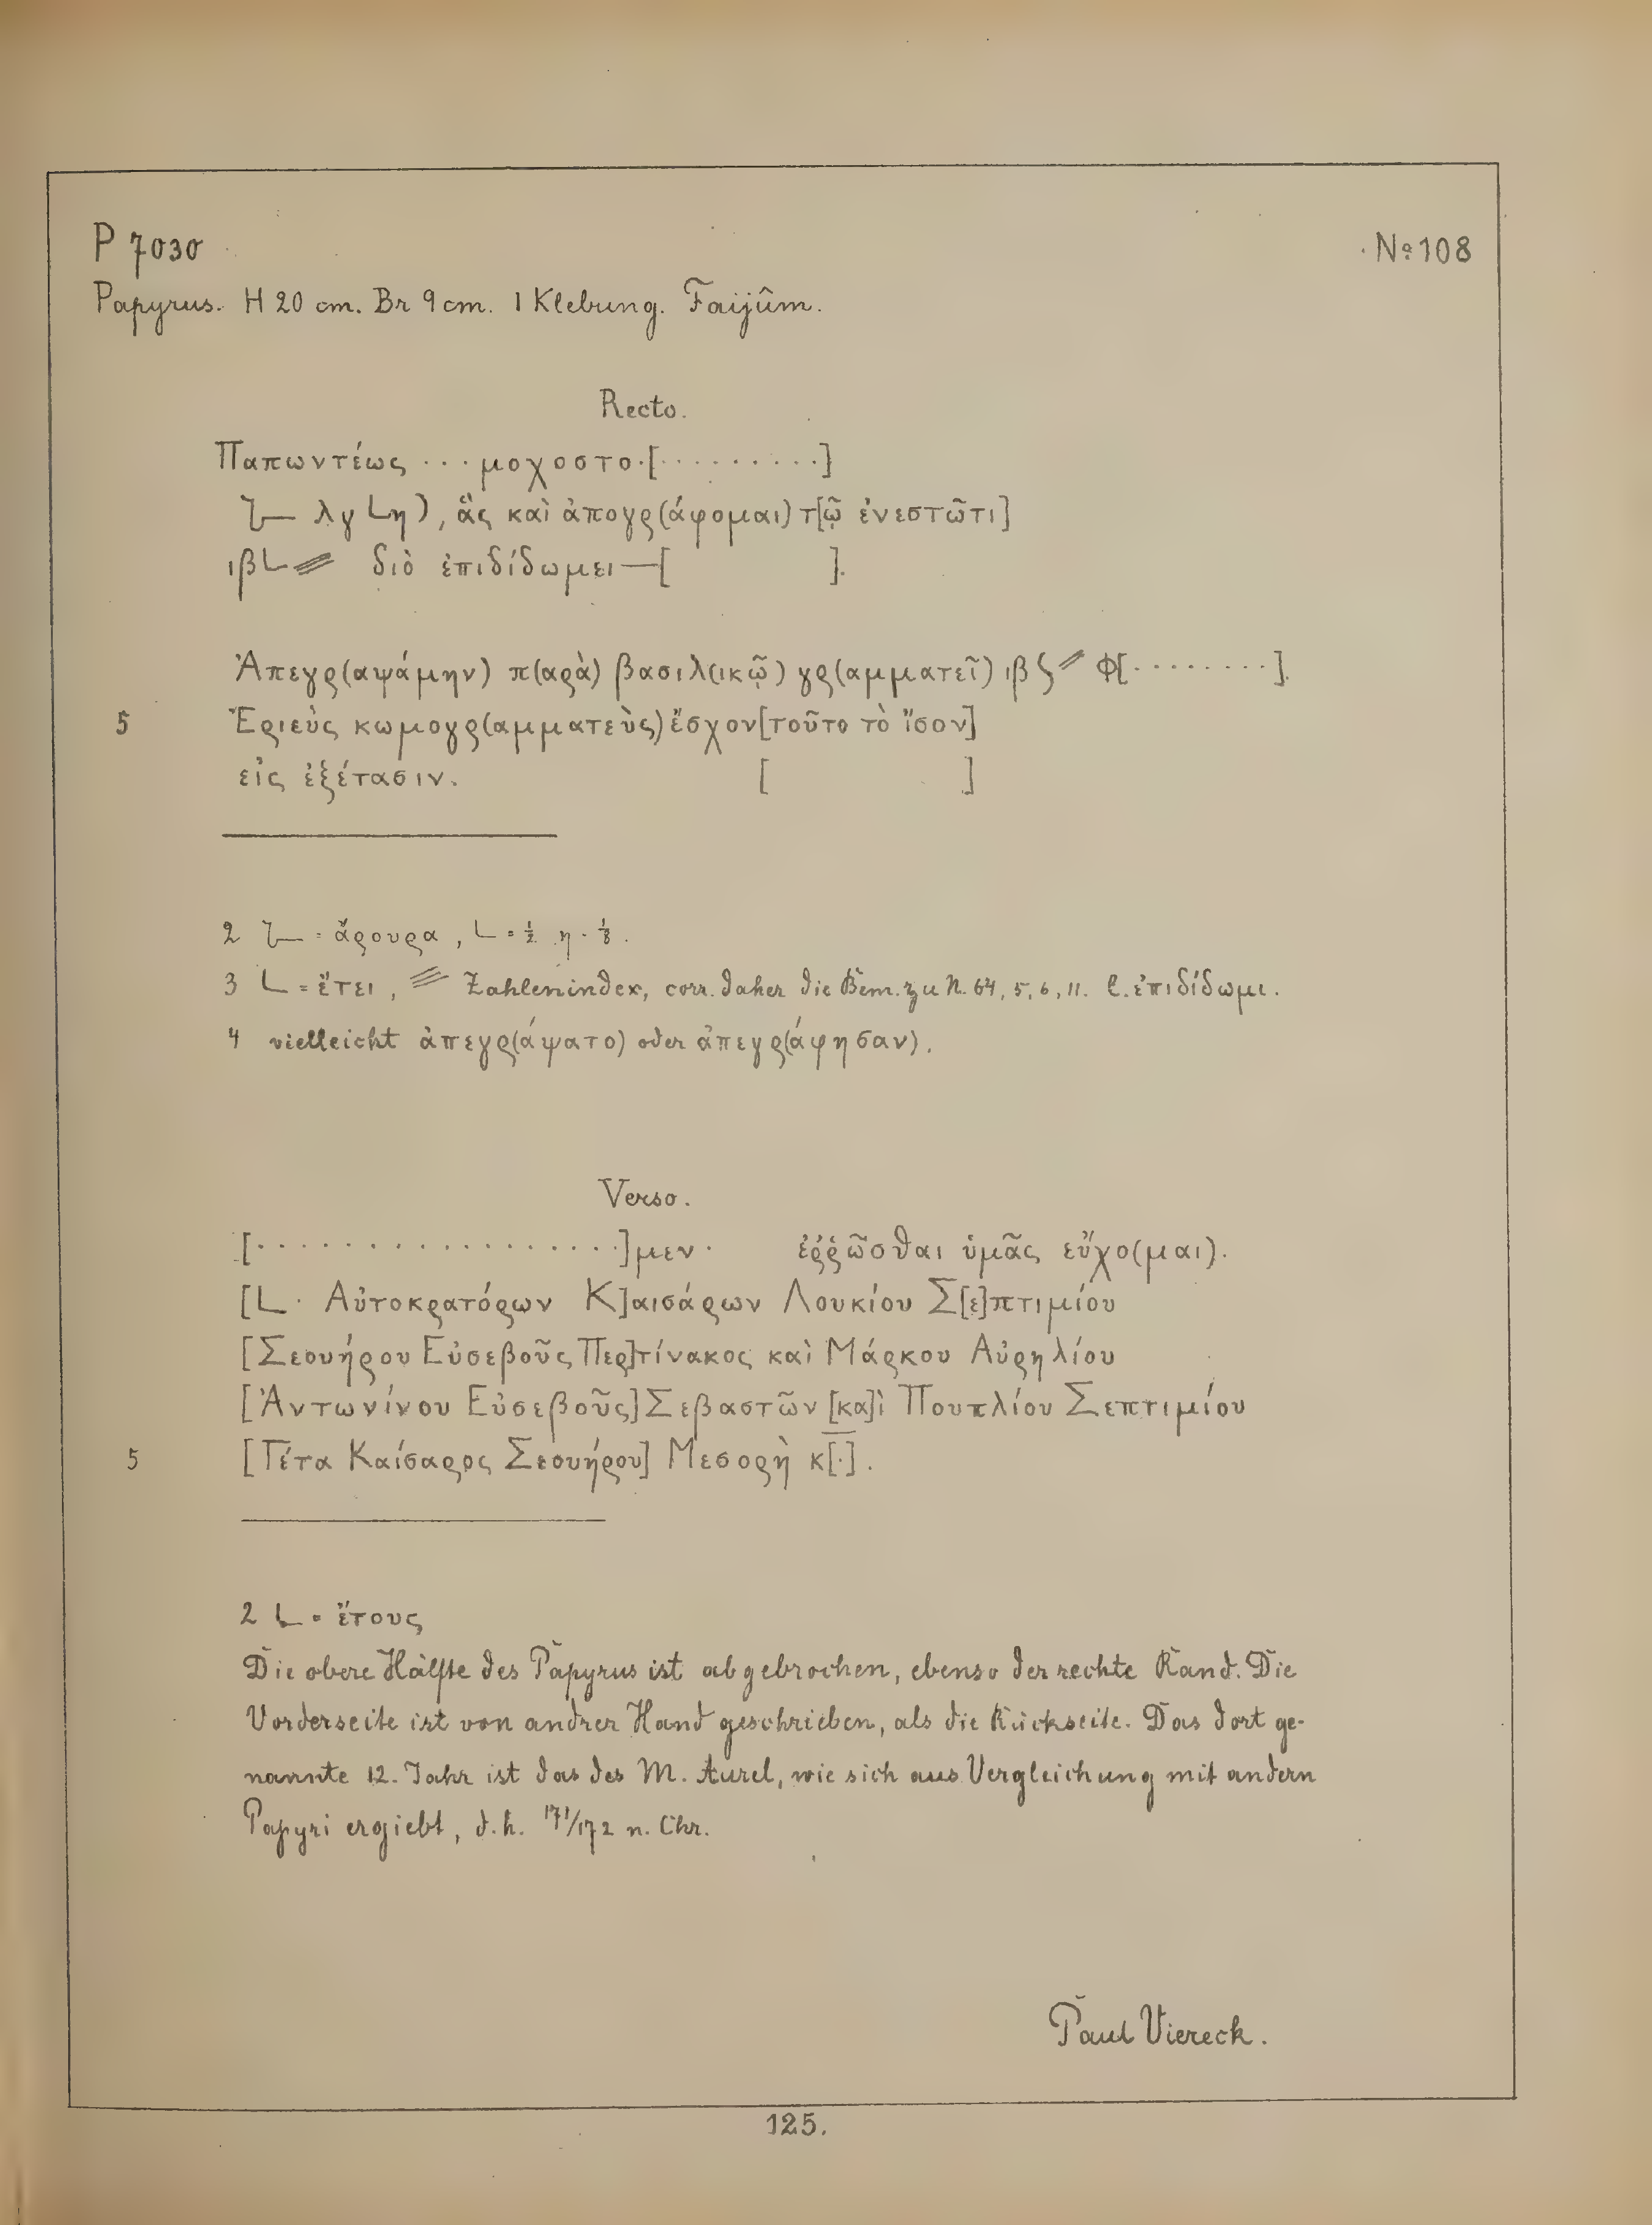 P 7030 Nº 108
Papyrus. H 20 cm. Br 9 cm. 1 Klebung. Faijûm.
Recto.
Παπωντέως ··· μοχοστο·[·········]
𐅵— λγ 𐅵η), ἃς καὶ ἀπογρ(άφομαι) τ[ῷ ἐνεστῶτι]
ιβ L⫽ διὸ ἐπιδίδωμει—[ ].
Ἀπεγρ(αψάμην) π(αρὰ) βασιλ(ικῷ) γρ(αμματεῖ) ιβ ϛ⫽ Φ[········].
5 Ἑριεὺς κωμογρ(αμματεὺς) ἔσχον[τοῦτο τὸ ἴσον]
εἰς ἐξέτασιν. [ ]
2 = ἄρουρα, L = ½ η = ⅛.
3 L = ἔτει, ⫽ Zahlenindex, corr. daher die Bem. zu N. 64, 5, 6, 11. l. ἐπιδίδωμι.
4 vielleicht ἀπεγρ(άψατο) oder ἀπεγρ(άφησαν).
Verso.
[··················]μεν· ἐῤῥῶσθαι ὑμᾶς εὔχο(μαι).
[L · Αὐτοκρατόρων Κ]αισάρων Λουκίου Σ[ε]πτιμίου
[Σεουήρου Εὐσεβοῦς Περ]τίνακος καὶ Μάρκου Αὐρηλίου
[Ἀντωνίνου Εὐσεβοῦς] Σεβαστῶν [κα]ὶ Πουπλίου Σεπτιμίου
5 [Γέτα Καίσαρος Σεουήρου] Μεσορὴ κ[·].
2 L = ἔτους
Die obere Hälfte des Papyrus ist abgebrochen, ebenso der rechte Rand. Die
Vorderseite ist von andrer Hand geschrieben, als die Rückseite. Das dort ge-
nannte 12. Jahr ist das des M. Aurel, wie sich aus Vergleichung mit andern
Papyri ergiebt, d. h. 171/172 n. Chr.
Paul Viereck.
125.